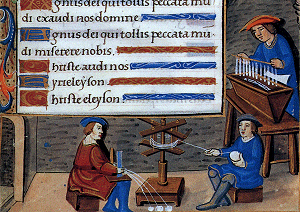 Agnus dei qui tollis peccata mu
di exaudi nos domine
Agnus dei qui tollis peccata mu
di miserere nobis.
Christe audi nos
Kyrieleyson
Christe eleyson